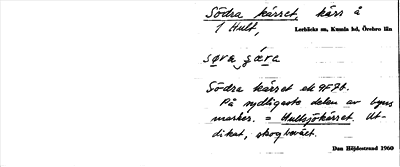 Södra kärret, kärr å
1 Hult,
Lerbäcks sn, Kumla hd, Örebro län
Södra kärret ek 9F7b.
På sydligaste delen av byns
marker. = Hultsjökärret. Ut-
dikat, skogbevuxet.
Dan Höjdestrand 1960